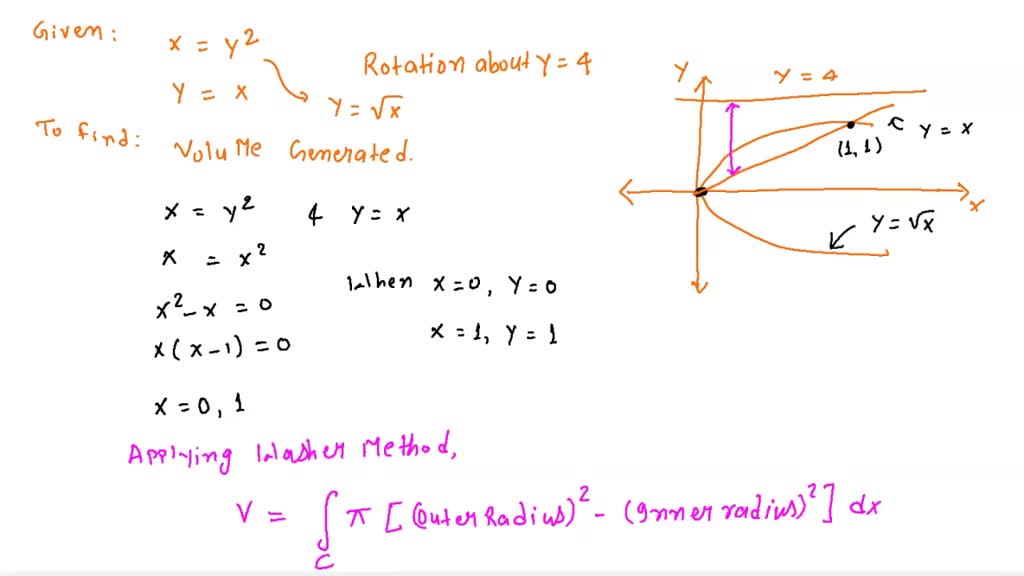 Given:
x = y²
y = x
y = √x
Rotation about y = 4
To find:
Volume Generated.
x = y² & y = x
x = x²
x² - x = 0
x(x-1) = 0
x = 0, 1
When x=0, y=0
x=1, y=1
Applying Washer Method,
V = ∫C π [(Outer Radius)² - (Inner radius)²] dx
y
y = 4
y = x
(1,1)
x
y = √x